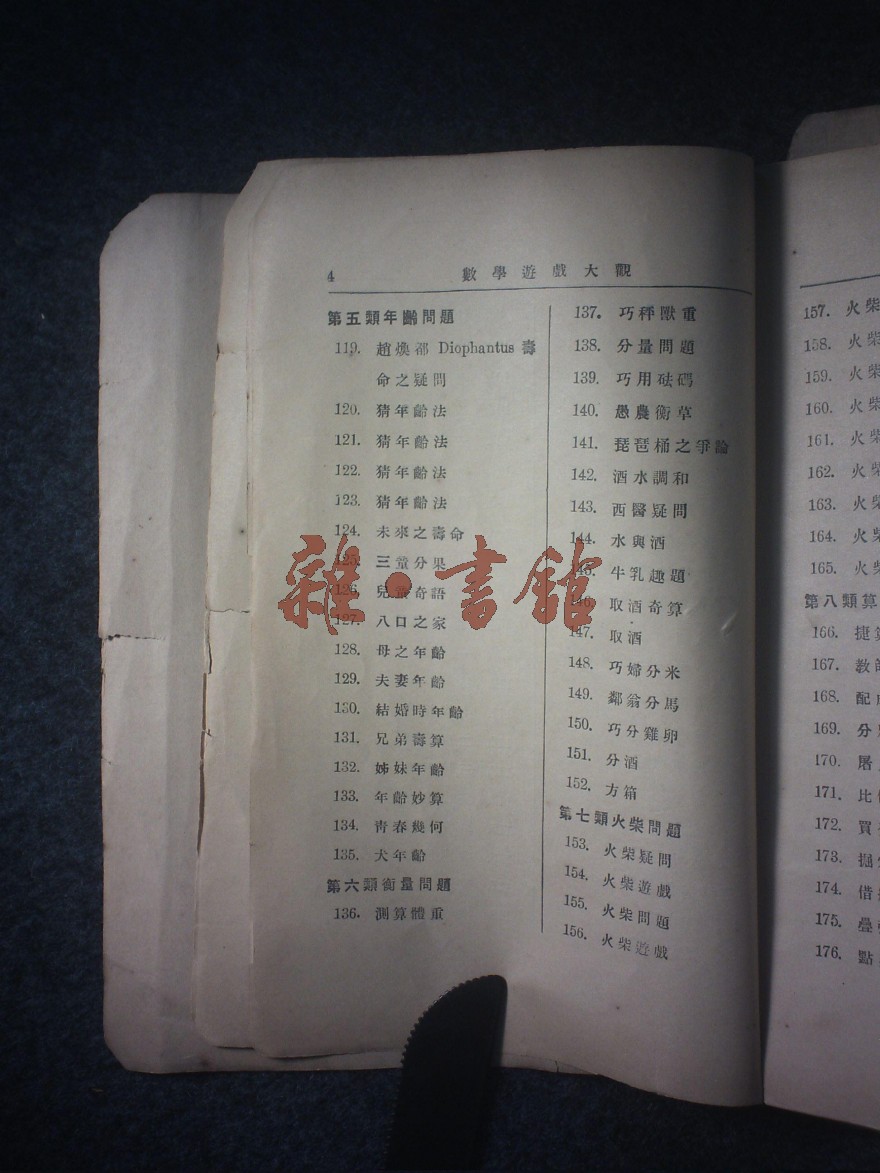 4
數學遊戲大觀
第五類年齡問題
119. 趙煥邵 Diophantus 壽
命之疑問
120. 猜年齡法
121. 猜年齡法
122. 猜年齡法
123. 猜年齡法
124. 未來之壽命
125. 三童分果
126. 兒童奇語
127. 八口之家
128. 母之年齡
129. 夫妻年齡
130. 結婚時年齡
131. 兄弟壽算
132. 姊妹年齡
133. 年齡妙算
134. 靑春幾何
135. 犬年齡
第六類衡量問題
136. 測算體重
137. 巧秤獸重
138. 分量問題
139. 巧用砝碼
140. 愚農衡草
141. 琵琶桶之爭論
142. 酒水調和
143. 西醫疑問
144. 水與酒
145. 牛乳趣題
146. 取酒奇算
147. 取酒
148. 巧婦分米
149. 鄰翁分馬
150. 巧分雞卵
151. 分酒
152. 方箱
第七類火柴問題
153. 火柴疑問
154. 火柴遊戲
155. 火柴問題
156. 火柴遊戲
157. 火柴
158. 火柴
159. 火柴
160. 火柴
161. 火柴
162. 火柴
163. 火柴
164. 火柴
165. 火柴
第八類算
166. 捷算
167. 教師
168. 配
169. 分
170. 屠
171. 比
172. 買
173. 掘
174. 借
175. 疊
176. 點
雜·書館